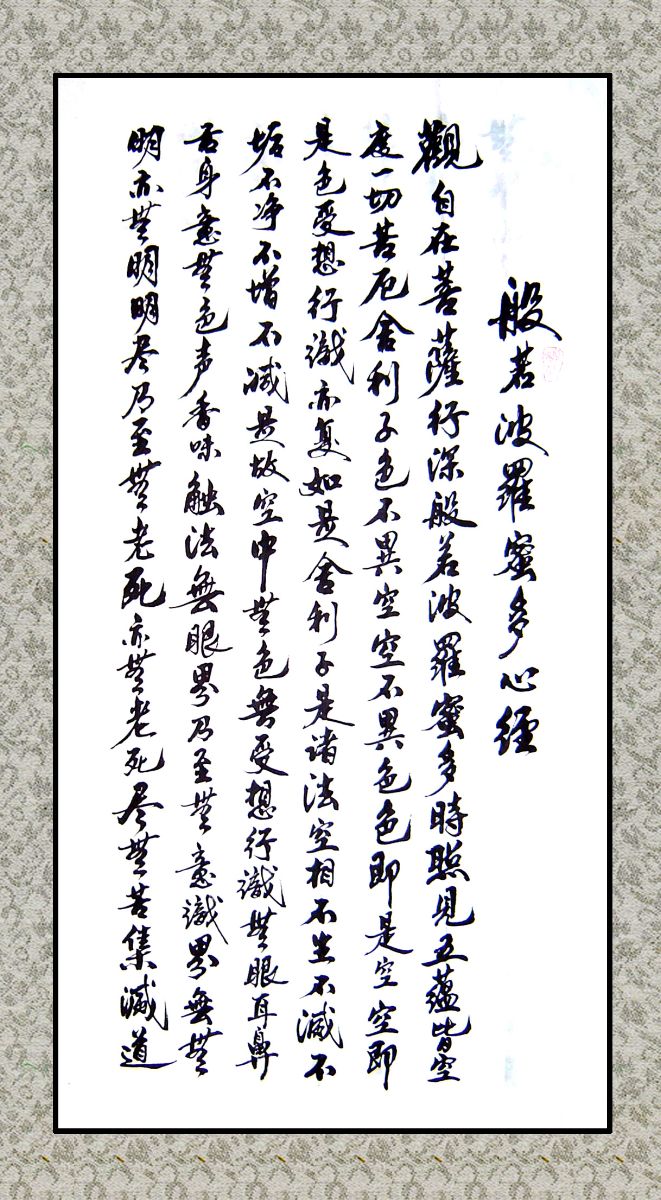 般若波羅蜜多心經
觀自在菩薩行深般若波羅蜜多時照見五蘊皆空
度一切苦厄舍利子色不異空空不異色色即是空空即
是色受想行識亦复如是舍利子是诸法空相不生不滅不
垢不净不增不减是故空中無色無受想行識無眼耳鼻
舌身意無色声香味触法無眼界乃至無意識界無無
明亦無明明尽乃至無老死亦無老死尽無苦集滅道